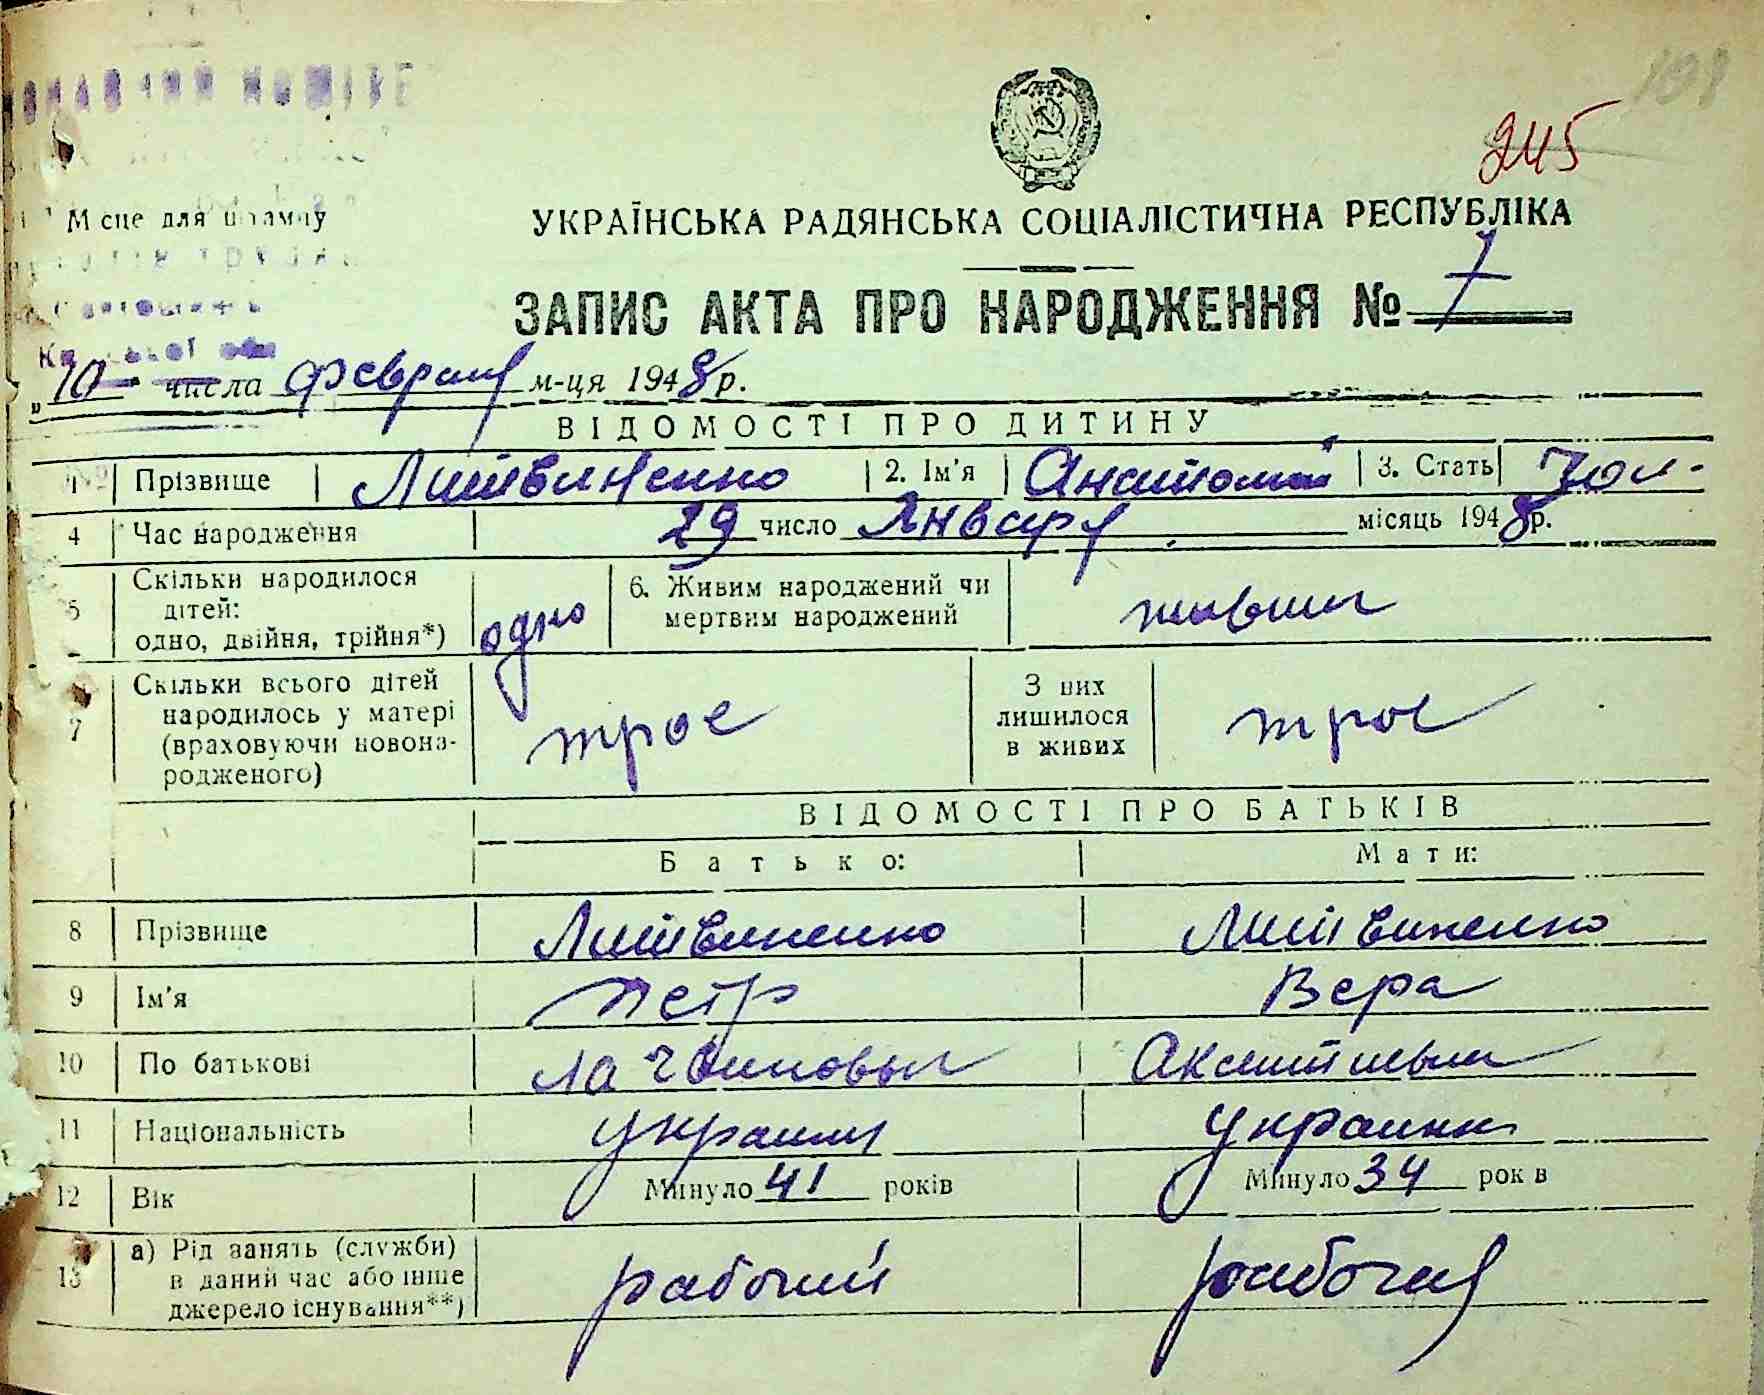 245
Місце для штампу
УКРАЇНСЬКА РАДЯНСЬКА СОЦІАЛІСТИЧНА РЕСПУБЛІКА
ЗАПИС АКТА ПРО НАРОДЖЕННЯ № 7
„10" числа февраля м-ця 1948 р.
ВІДОМОСТІ ПРО ДИТИНУ
1 Прізвище Литвиненко 2. Ім'я Анатолий 3. Стать
4 Час народження 29 число Января місяць 1948 р.
5 Скільки народилося дітей: одно, двійня, трійня*) одно 6. Живим народжений чи мертвим народжений живым
7 Скільки всього дітей народилось у матері (враховуючи новонародженого) трое З них лишилося в живих трое
ВІДОМОСТІ ПРО БАТЬКІВ
Батько: Мати:
8 Прізвище Литвиненко Литвиненко
9 Ім'я Петр Вера
10 По батькові
11 Національність украинец украинка
12 Вік Минуло 41 років Минуло 34 років
13 а) Рід занять (служби) в даний час або інше джерело існування**) рабочий рабочая